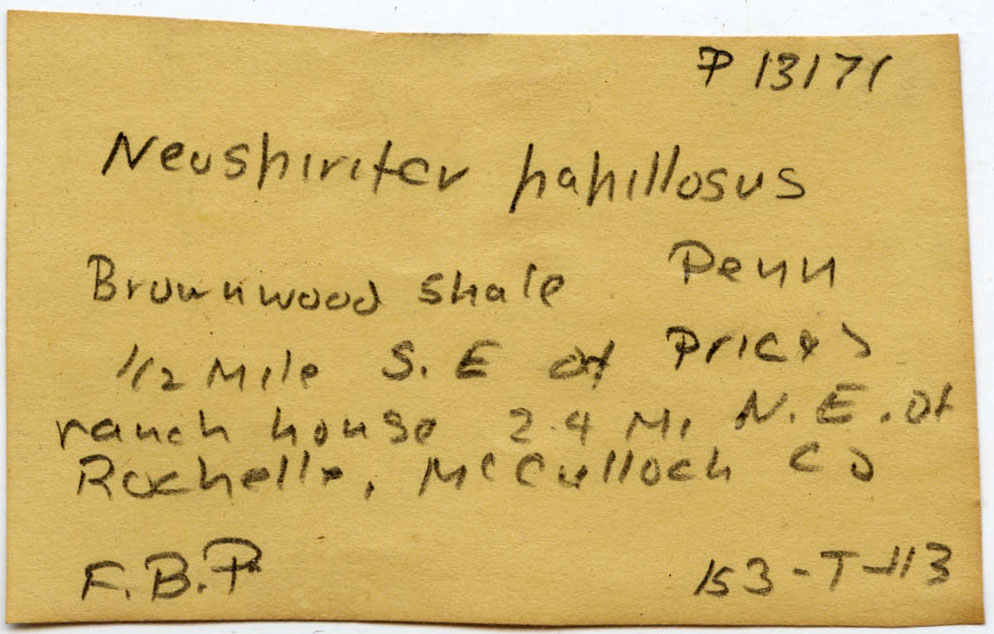 P 13171
Neospirifer papillosus
Brownwood shale Penn
1/2 Mile S.E of Prices
ranch house 2.4 Mi N.E. of
Rochelle, McCulloch Co
F.B.P
153-T-113